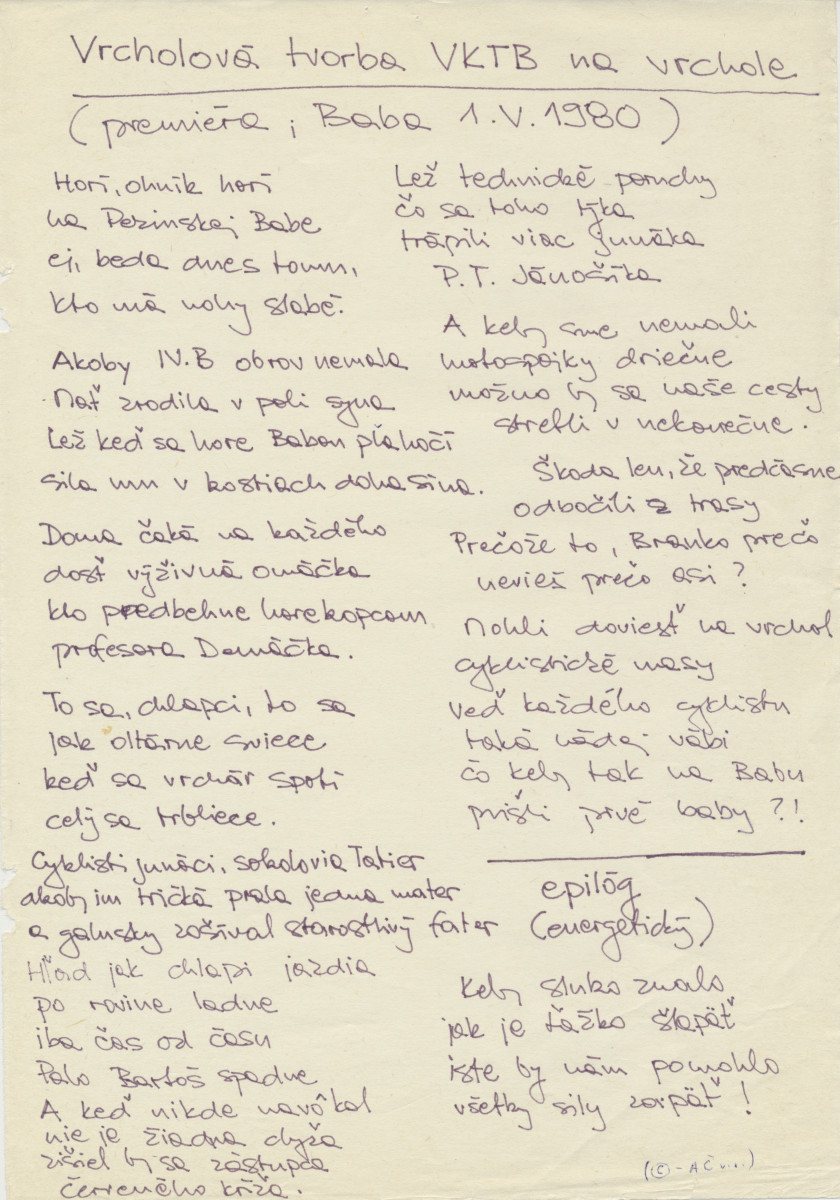 Vrcholová tvorba VKTB na vrchole
(premiéra ; Baba 1.V.1980)
Horí, ohník horí
na Pezinskej Babe
ej, beda dnes tomu,
kto má nohy slabé.
Akoby IV.B obrov nemala
Mať zrodila v poli syna
Lež keď sa hore Babou plahočí
sila mu v kostiach dohasína.
Doma čaká na každého
dosť výživná omáčka
kto predbehne horekopcom
profesora Demáčka.
To sa, chlapci, to sa
jak oltárne sviece
keď sa vrchár spotí
celý sa trbliece.
Cyklisti junáci, sokolovia Tatier
akoby im tričká prala jedna mater
a galusky zašíval starostlivý fater
Hľaď jak chlapi jazdia
po rovine ladne
iba čas od času
Palo Bartoš spadne
A keď nikde navôkol
nie je žiadna chyža
zišiel by sa zástupca
červeného kríža.
Lež technické poruchy
čo sa toho týka
trápili viac junáka
P.T. Jánošíka
A keby sme nemali
motospojky driečne
možno by sa naše cesty
stretli v nekonečne.
Škoda len, že predčasne
odbočili z trasy
Prečože to, Branko prečo
nevieš prečo asi ?
Mohli doviesť na vrchol
cyklistické masy
veď každého cyklistu
taká nádej vábi
čo keby tak na Babu
prišli prvé baby ?!
epilóg
(energetický)
Keby slnko znalo
jak je ťažko šlapäť
iste by nám pomohlo
všetky sily zarpäť !
(© - AČ...)